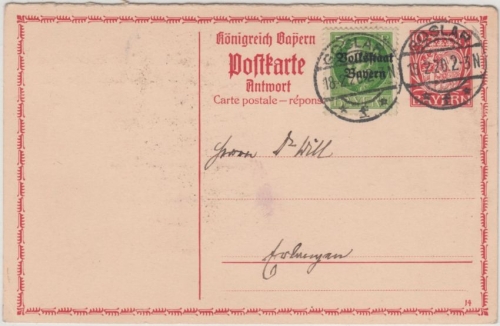 Königreich Bayern
Postkarte
Antwort
Carte postale – réponse
GOSLAR
18.2.20. 2-3N
Volksstaat
Bayern
GOSLAR
18.2.20. 2-3N
BAYERN
Herrn Dr Will
Erlangen
14